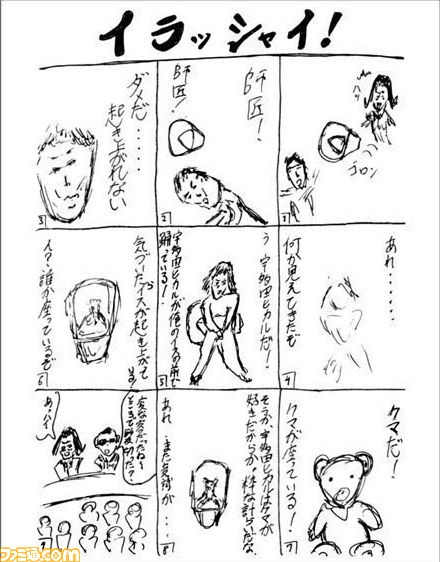 イラッシャイ!
ハッ
ゴロン
1
師匠!
師匠!
2
ダメだ・・・・・
起き上がれない
3
あれ・・・・・・
何か見えてきたぞ
4
う、宇多田ヒカルだ!
宇多田ヒカルが俺のイスの前で
踊っている!
5
気づいたらイスが起き上がって
いる!
ん?誰か座っているぞ
6
クマだ!
クマが座っている!
7
そうか、宇多田ヒカルはクマが
好きだからか。粋な計らいだな。
あれ…また変化が・・・・
8
ところで
あっ、ハイ
ファミ通.com